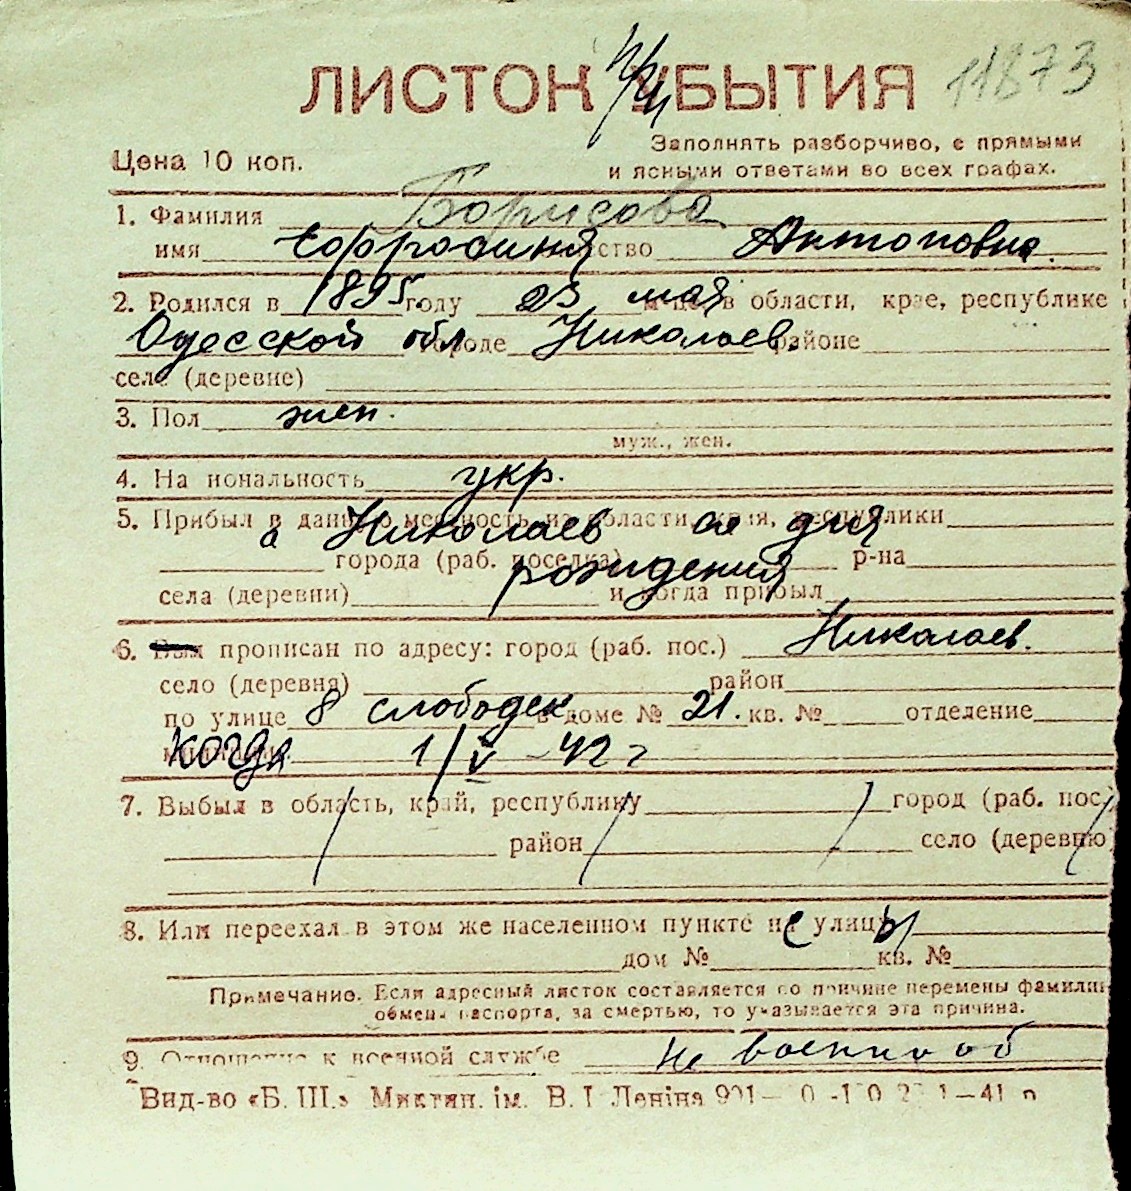 11873
ЛИСТОК УБЫТИЯ
Цена 10 коп.
Заполнять разборчиво, с прямыми
и ясными ответами во всех графах.
1. Фамилия Борисова
имя Ефросиния ство Антоновна
2. Родился в 1895 году 23 мая м-це в области, крае, республике
Одесской обл городе Николаев. районе
селе (деревне)
3. Пол жен.
муж., жен.
4. Национальность укр.
5. Прибыл в данную местность из области, края, республики
в Николаев со дня
города (раб. поселка) р-на
рождения
села (деревни) и когда прибыл
6. Был прописан по адресу: город (раб. пос.) Николаев.
село (деревня) район
по улице 8 слободск в доме № 21. кв. № отделение
когда 1/V-42 г
7. Выбыл в область, край, республику город (раб. пос.)
район село (деревню)
8. Или переехал в этом же населенном пункте с улицы
дом № кв. №
Примечание. Если адресный листок составляется по причине перемены фамилии
обмена паспорта, за смертью, то указывается эта причина.
9. Отношение к военной службе не военнооб
Вид-во «Б. Ш.» Миктип. ім. В. І Леніна